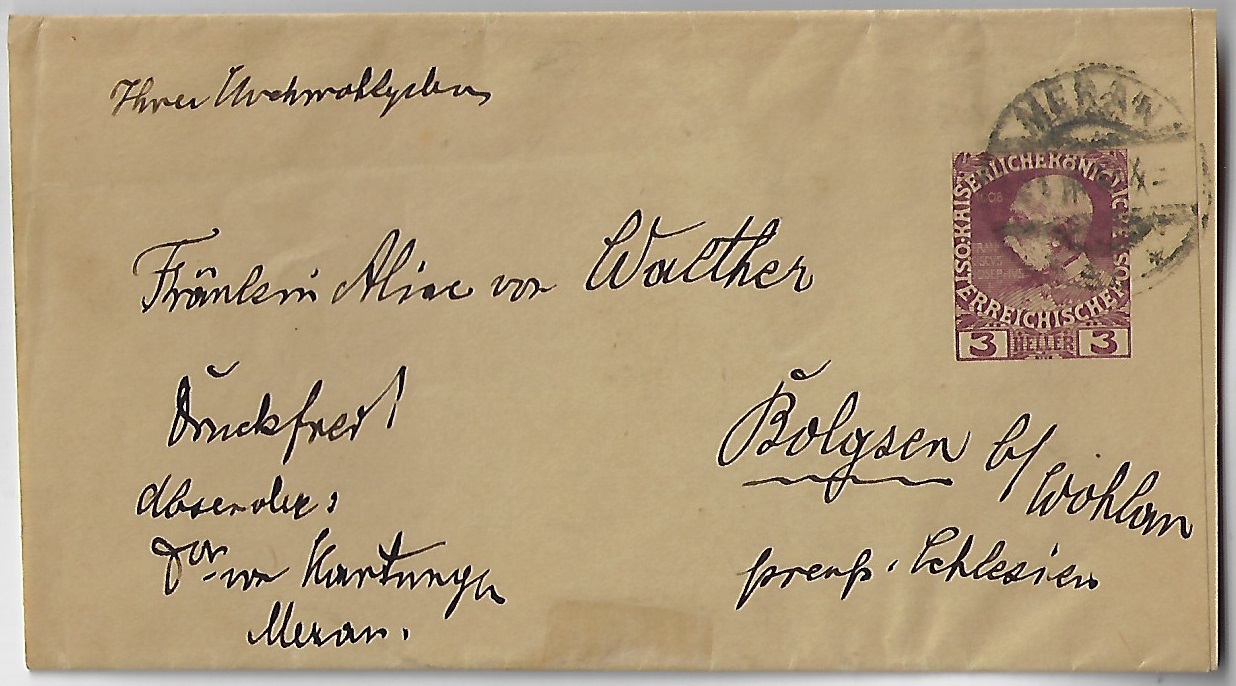 Ihrer Hochwohlgeboren
MERAN
KAISERLICHE KÖNIGLICHE
ÖSTERREICHISCHE POST
3 HELLER 3
Fräulein Alice von Walther
Druckfrei!
Absender:
von Hartungen
Meran.
Bolgsen b/
Wohlau
preuß. Schlesien